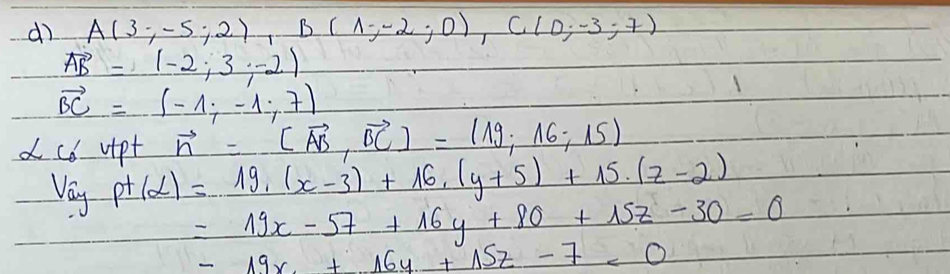 d) A(3;-5;2), B(1;-2;0), C(0;-3;7)
AB⃗ = (-2;3;-2)
BC⃗ = (-1;-1;7)
α có vtpt n⃗ = [AB⃗, BC⃗] = (19; 16; 15)
Vậy pt(α) = 19.(x-3) + 16.(y+5) + 15.(z-2)
= 19x - 57 + 16y + 80 + 15z - 30 = 0
= 19x + 16y + 15z - 7 = 0